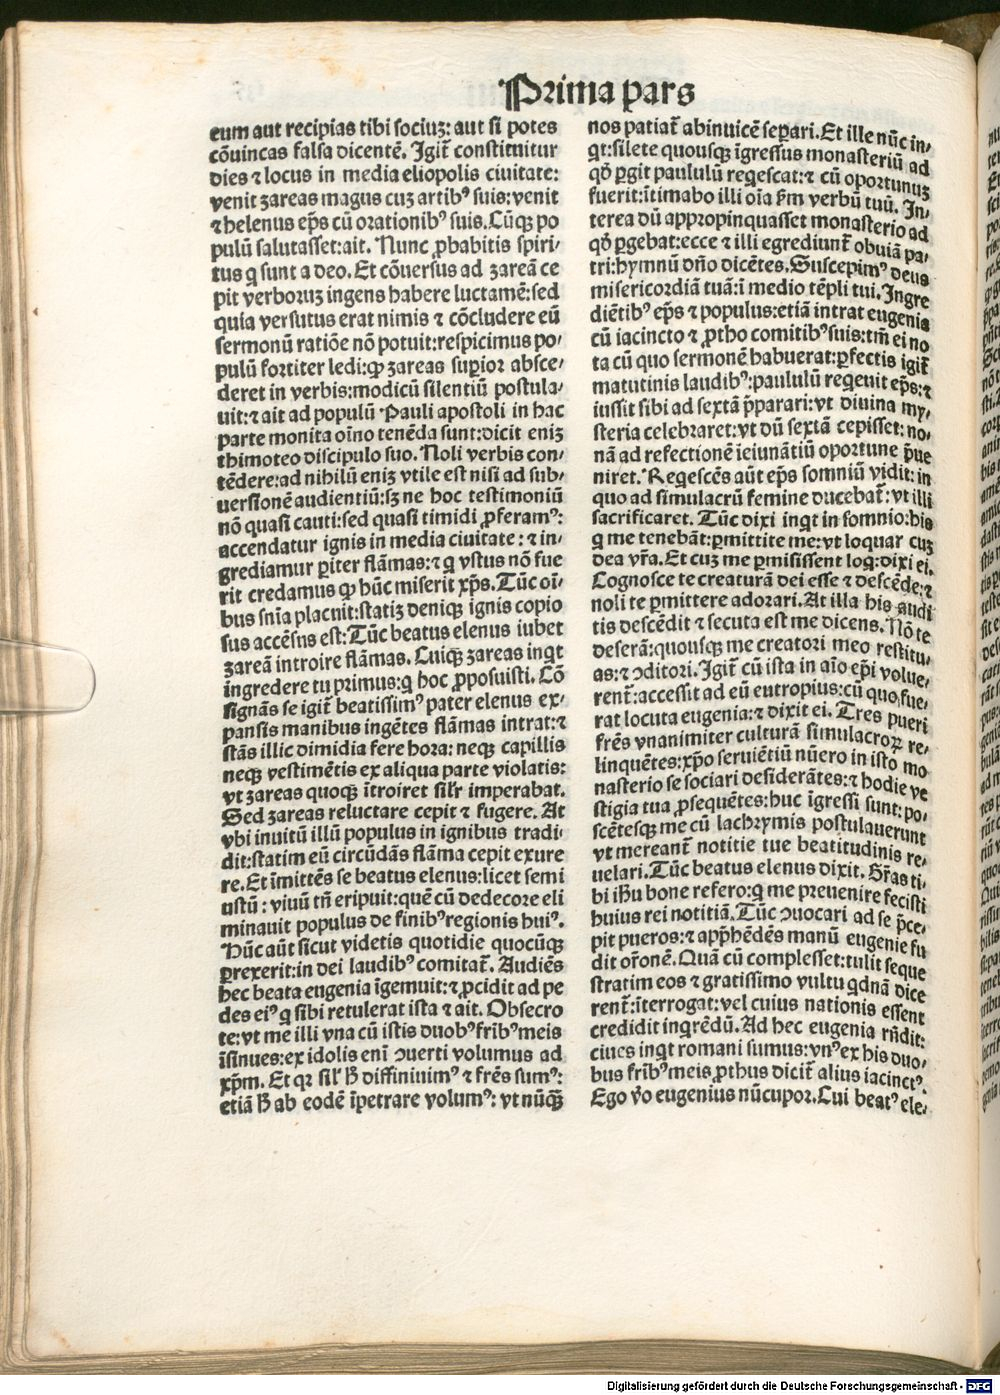 Prima pars
eum aut recipias tibi sociuꝫ: aut si potes
cōuincas falsa dicentē. Igit᷑ constituitur
dies ⁊ locus in media eliopolis ciuitate:
venit zareas magus cuꝫ artibꝰ suis: venit
⁊ helenus ep̄s cū orationibꝰ suis. Cūqꝫ po
pulū salutasset: ait. Nunc ꝓbabitis spiri⸗
tus q̇ sunt a deo. Et cōuersus ad zareā ce
pit verboruꝫ ingens habere luctamē: sed
quia versutus erat nimis ⁊ cōcludere eū
sermonū ratiōe nō potuit: respicimus po⸗
pulū fortiter ledi: ꝙ zareas suꝑior absce⸗
deret in verbis: modicū silentiū postula⸗
uit: ⁊ ait ad populū Pauli apostoli in hac
parte monita oīno tenēda sunt: dicit eniꝫ
thimoteo discipulo suo. Noli verbis con⸗
tēdere: ad nihilū eniꝫ vtile est nisi ad sub⸗
uersionē audientiū: sꝫ ne hoc testimoniū
nō quasi cauti: sed quasi timidi ꝓferamꝰ:
accendatur ignis in media ciuitate: ⁊ in⸗
grediamur ꝑiter flāmas: ⁊ q̇ vstus nō fue
rit credamus ꝙ hūc miserit xp̄s. Tūc oī⸗
bus snīa placuit: statiꝫ deniqꝫ ignis copio
sus accēsus est: Tūc beatus elenus iubet
zareā introire flāmas. Cuiqꝫ zareas inqt
ingredere tu primus: q̇ hoc ꝓposuisti. Cō
signās se igit᷑ beatissimꝰ pater elenus ex⸗
pansis manibus ingētes flāmas intrat: ⁊
stās illic dimidia fere hora: neqꝫ capillis
neqꝫ vestimētis ex aliqua parte violatis:
vt zareas quoqꝫ ītroiret sil̄r imperabat.
Sed zareas reluctare cepit ⁊ fugere. At
vbi inuitū illū populus in ignibus tradi⸗
dit: statim eū circūdās flāma cepit exure
re. Et īmittēs se beatus elenus: licet semi
ustū: viuū tn̄ eripuit: quē cū dedecore eli
minauit populus de finibꝰ regionis huiꝰ.
Hūc aūt sicut videtis quotidie quocūqꝫ
ꝑrexerit: in dei laudibꝰ comitat᷑. Audiēs
hec beata eugenia īgemuit: ⁊ ꝓcidit ad pe
des eiꝰ q̇ sibi retulerat ista ⁊ ait. Obsecro
te: vt me illi vna cū istis duobꝰ fr̄ibꝰ meis
īsinues: ex idolis enī ↄuerti volumus ad
xp̄m. Et qꝛ sil̄ ħ diffiniuimꝰ ⁊ fr̄es sumꝰ:
etiā ħ ab eodē īpetrare volumꝰ: vt nūqꝫ̄
nos patiat᷑ abinuicē seꝑari. Et ille nūc in⸗
qt: silete quousqꝫ īgressus monasteriū ad
qḋ ꝑgit paululū reqescat: ⁊ cū oportunuꝫ
fuerit: ītimabo illi oīa ꝑm verbū tuū. In⸗
terea dū appropinquasset monasterio ad
qḋ ꝑgebat: ecce ⁊ illi egrediunt᷑ obuiā pa⸗
tri: hymnū dn̄o dicētes. Suscepimꝰ deus
misericordiā tuā: ī medio tēpli tui. Ingre
diētibꝰ ep̄s ⁊ populus: etiā intrat eugenia
cū iacincto ⁊ ꝓtho comitibꝰ suis: tm̄ ei no
ta cū quo sermonē habuerat: ꝑfectis igit᷑
matutinis laudibꝰ: paululū reqeuit ep̄s: ⁊
iussit sibi ad sextā p̄parari: vt diuina my⸗
steria celebraret: vt dū sextā cepisset: no⸗
nā ad refectionē ieiunātiū oportune p̄ue
niret. Reqescēs aūt ep̄s somniū vidit: in
quo ad simulacrū femine ducebat᷑: vt illi
sacrificaret. Tūc dixi inqt in somnio: his
q̇ me tenebāt: ꝑmittite me: vt loquar cuꝫ
dea vr̄a. Et cuꝫ me ꝑmisissent loq̇: dixi ei.
Cognosce te creaturā dei esse ⁊ descēde: ⁊
noli te ꝑmittere adorari. At illa his audi
tis descēdit ⁊ secuta est me dicens. Nō te
deserā: quousqꝫ me creatori meo restitu⸗
as: ⁊ ↄditori. Igit᷑ cū ista in aīo ep̄i volue⸗
rent᷑: accessit ad eū eutropius: cū quo fue⸗
rat locuta eugenia: ⁊ dixit ei. Tres pueri
fr̄es vnanimiter culturā simulacroꝝ re⸗
linquētes: xp̄o seruiētiū nūero in isto mo
nasterio se sociari desiderātes: ⁊ hodie ve
stigia tua ꝓsequētes: huc īgressi sunt: po⸗
scētesqꝫ me cū lachrymis postulauerunt
vt mereant᷑ notitie tue beatitudinis re⸗
uelari. Tūc beatus elenus dixit. Gr̄as ti⸗
bi ih̄u bone refero: q̇ me preuenire fecisti
huius rei notitiā. Tūc ↄuocari ad se p̄ce⸗
pit pueros: ⁊ app̄hēdēs manū eugenie fu
dit or̄onē. Quā cū complesset: tulit seque
stratim eos ⁊ gratissimo vultu qdnā dice
rent᷑: īterrogat: vel cuius nationis essent
credidit inqrēdū. Ad hec eugenia rn̄dit:
ciues inqt romani sumus: vnꝰ ex his duo⸗
bus fr̄ibꝰ meis ꝓthus dicit᷑ alius iacinctꝰ.
Ego v̊o eugenius nūcupor. Cui beatꝰ ele⸗
Digitalisierung gefördert durch die Deutsche Forschungsgemeinschaft - DFG